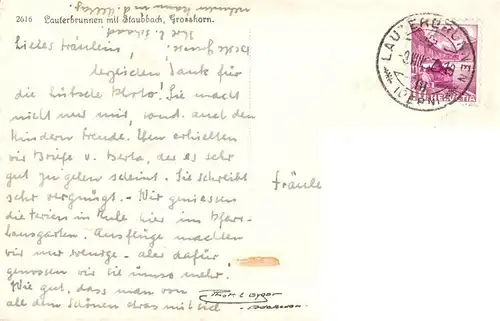 2616 Lauterbrunnen mit Staubbach, Grosshorn.
Liebes Fräulein,
herzlichen Dank für
die hübsche Photo! Sie macht
nicht nur mir, sond. auch den
Kindern Freude. Eben erhielten
wir Briefe v. Berta, der es sehr
gut zu gehen scheint. Sie schreibt
sehr vergnügt. – Wir geniessen
die Ferien in Ruhe hier im Pfarr-
hausgarten. Ausflüge machten
wir nur wenige – aber dafür
genossen wir sie umso mehr.
Wie gut, dass man von
all dem Schönen etwas mit sich
nehmen kann in d. Alltag.
LAUTERBRUNNEN
(BERN)
HELVETIA
Fräule